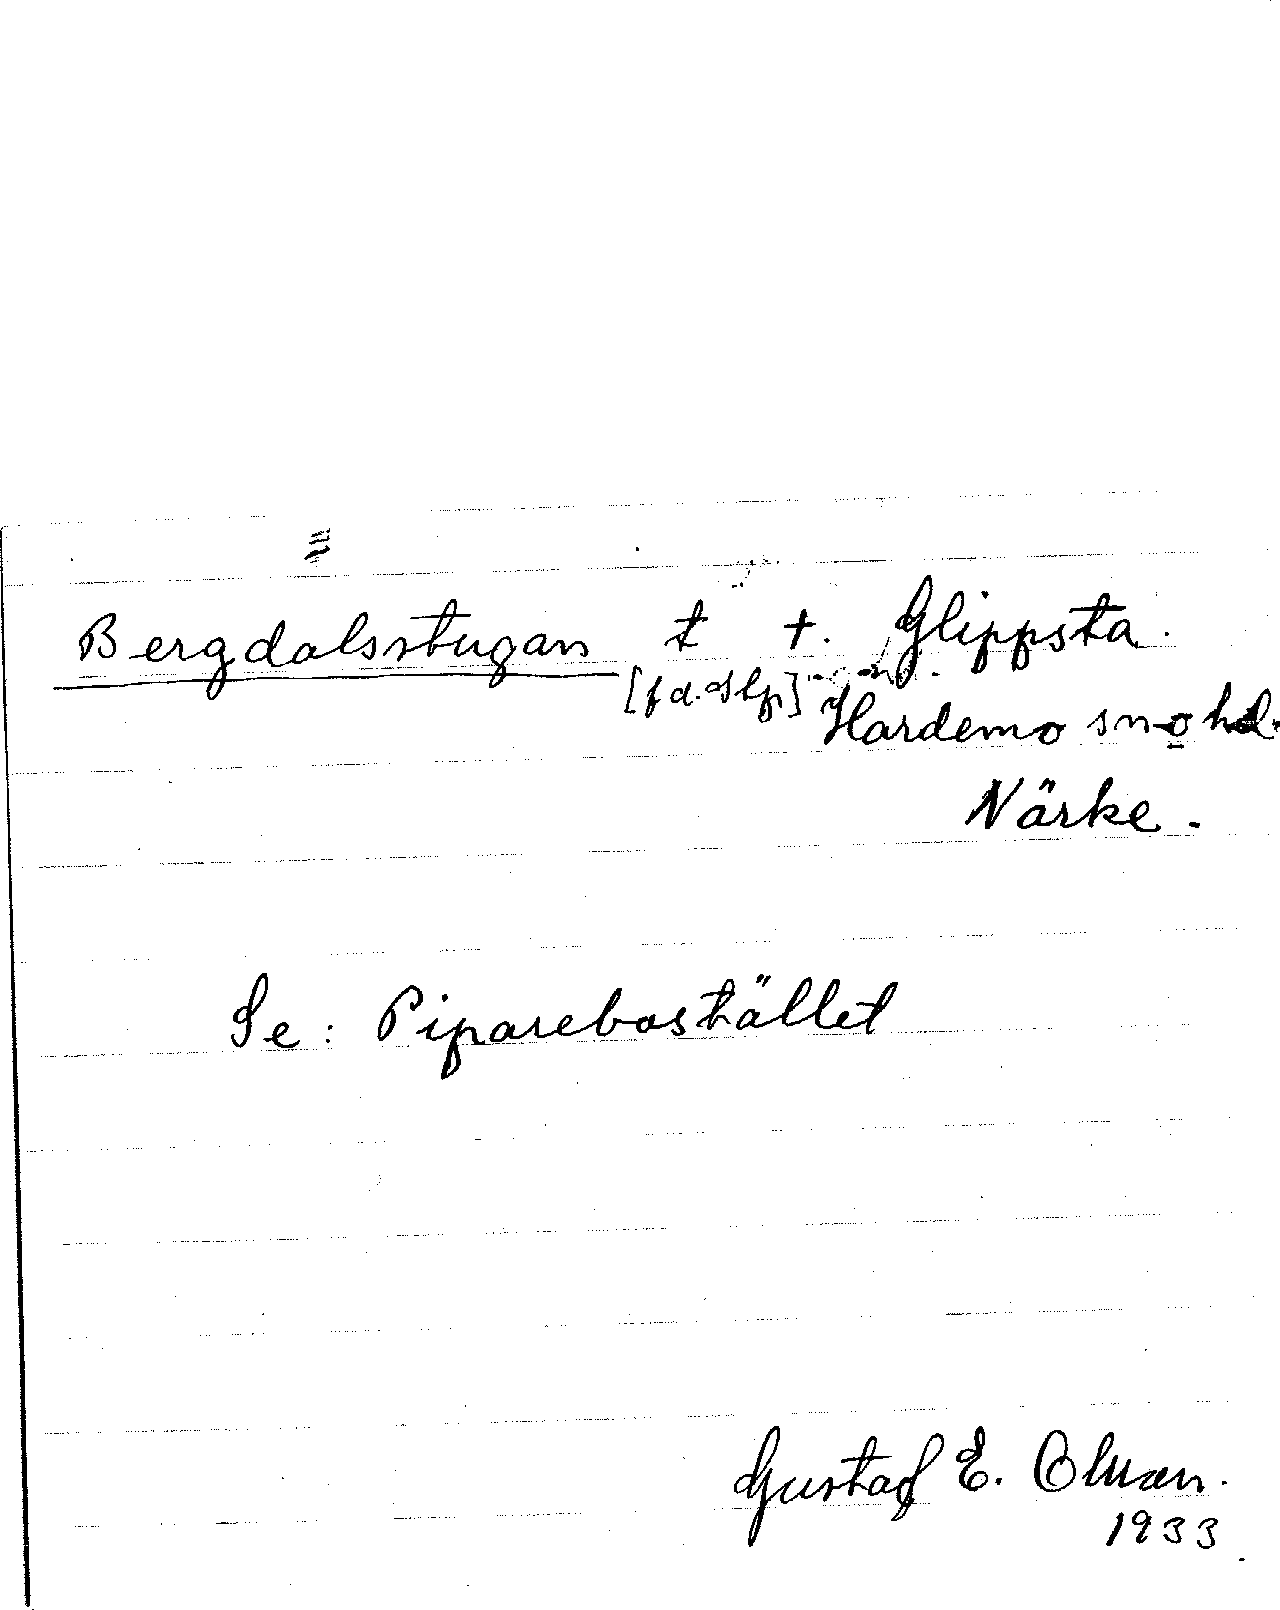 Bergdalsstugan t †. Glippsta.
[f d. slp]
Hardemo sn o hd.
Närke.
Se: Piparebostället
Gustaf E. Olsson.
1933